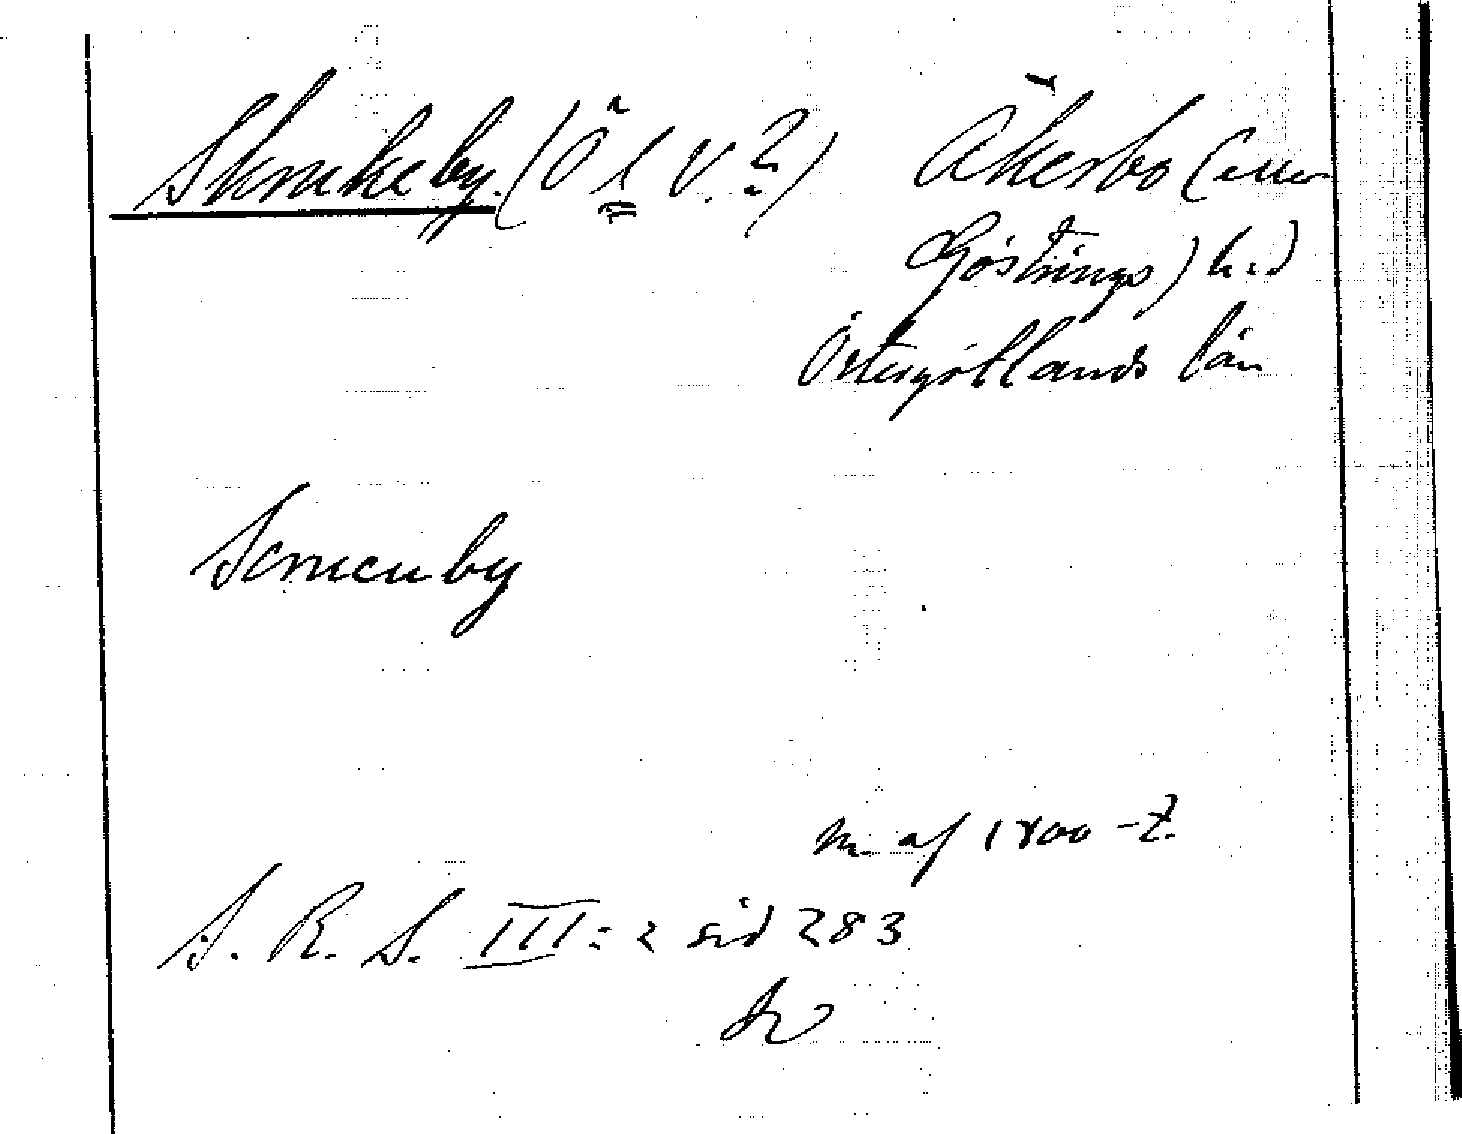 Skrukeby. (Ö l V. ?) Åkerbo (eller
Göstrings) h.d
Östergötlands län
Scrucuby
m. af 1300-t.
S. R. S. III:2 sid 283